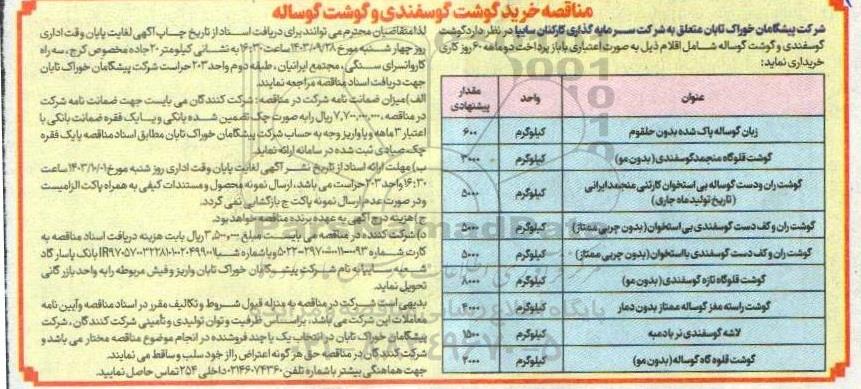 مناقصه خرید گوشت گوسفندی و گوشت گوساله
شرکت پیشگامان خوراک تابان متعلق به شرکت سرمایه گذاری کارکنان سایپا در نظر دارد گوشت
گوسفندی و گوشت گوساله شامل اقلام ذیل به صورت اعتباری با باز پرداخت دو ماهه ۶۰ روز کاری
خریداری نماید:
عنوان واحد مقدار پیشنهادی
زبان گوساله پاک شده بدون حلقوم کیلوگرم ۶۰۰
گوشت قلوگاه منجمد گوسفندی (بدون مو) کیلوگرم ۳۰۰۰
گوشت ران و دست گوساله بی استخوان کارتنی منجمد ایرانی
(تاریخ تولید ماه جاری) کیلوگرم ۵۰۰۰
گوشت ران و کف دست گوسفندی بی استخوان (بدون چربی ممتاز) کیلوگرم ۵۰۰۰
گوشت ران و کف دست گوسفندی با استخوان (بدون چربی ممتاز) کیلوگرم ۵۰۰۰
گوشت قلوگاه تازه گوسفندی (بدون مو) کیلوگرم ۸۰۰۰
گوشت راسته مغز گوساله ممتاز بدون دمار کیلوگرم ۴۰۰۰
لاشه گوسفندی نر با دمبه کیلوگرم ۱۵۰۰
گوشت قلوه گاه گوساله (بدون مو) کیلوگرم ۲۰۰۰
لذا متقاضیان محترم می توانند برای دریافت اسناد از تاریخ چاپ آگهی لغایت پایان وقت اداری
روز چهار شنبه مورخ ۱۴۰۳/۰۹/۲۸ ساعت ۱۶:۳۰ به نشانی کیلومتر ۲۰ جاده مخصوص کرج، سه راه
کاروانسرای سنگی، مجتمع ایرانیان، طبقه دوم واحد ۲۰۳ حراست شرکت پیشگامان خوراک تابان
جهت دریافت اسناد مناقصه مراجعه نمایند.
الف) میزان ضمانت نامه شرکت در مناقصه: شرکت کنندگان می بایست جهت ضمانت نامه شرکت
در مناقصه، ۷,۷۰۰,۰۰۰,۰۰۰ ریال را به صورت چک تضمین شده بانکی و یا یک فقره ضمانت بانکی با
اعتبار ۳ ماهه و یا واریز وجه به حساب شرکت پیشگامان خوراک تابان مطابق اسناد مناقصه یا یک فقره
چک صیادی ثبت شده در سامانه ارائه نماید.
ب) مهلت ارائه اسناد از تاریخ نشر آگهی لغایت پایان وقت اداری روز شنبه مورخ ۱۴۰۳/۱۰/۰۱ ساعت
۱۶:۳۰ واحد ۲۰۳ حراست می باشد، ارسال نمونه محصول و مستندات کیفی به همراه پاکت الزامیست
و در صورت عدم ارسال نمونه پاکت ج بازگشایی نمی گردد.
ج) هزینه درج آگهی به عهده برنده مناقصه خواهد بود.
د) شرکت کننده در مناقصه می بایست مبلغ ۳,۵۰۰,۰۰۰ ریال بابت هزینه دریافت اسناد مناقصه به
کارت شماره ۵۰۲۲-۲۹۷۰-۰۰۱۱-۰۰۹۳ و یا شماره شبا بانک پاسارگاد
شعبه سایپا به نام شرکت پیشگامان خوراک تابان واریز و فیش مربوطه را به واحد بازرگانی
تحویل نماید.
بدیهی است شرکت در مناقصه به منزله قبول شروط و تکالیف مقرر در اسناد مناقصه و آیین نامه
معاملات این شرکت می باشد. بر اساس ظرفیت و توان تولیدی و تأمینی شرکت کنندگان، شرکت
پیشگامان خوراک تابان در انتخاب یک یا چند فروشنده در انجام موضوع مناقصه مختار می باشد و
شرکت کنندگان در مناقصه حق هر گونه اعتراض را از خود سلب و ساقط می نمایند.
جهت هماهنگی بیشتر با شماره تلفن ۰۲۱۴۶۰۷۴۳۶۰ داخلی ۲۵۴ تماس حاصل نمایید.